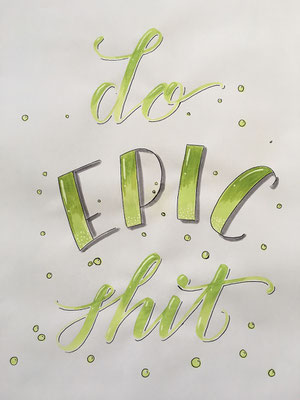 do
EPIC
shit